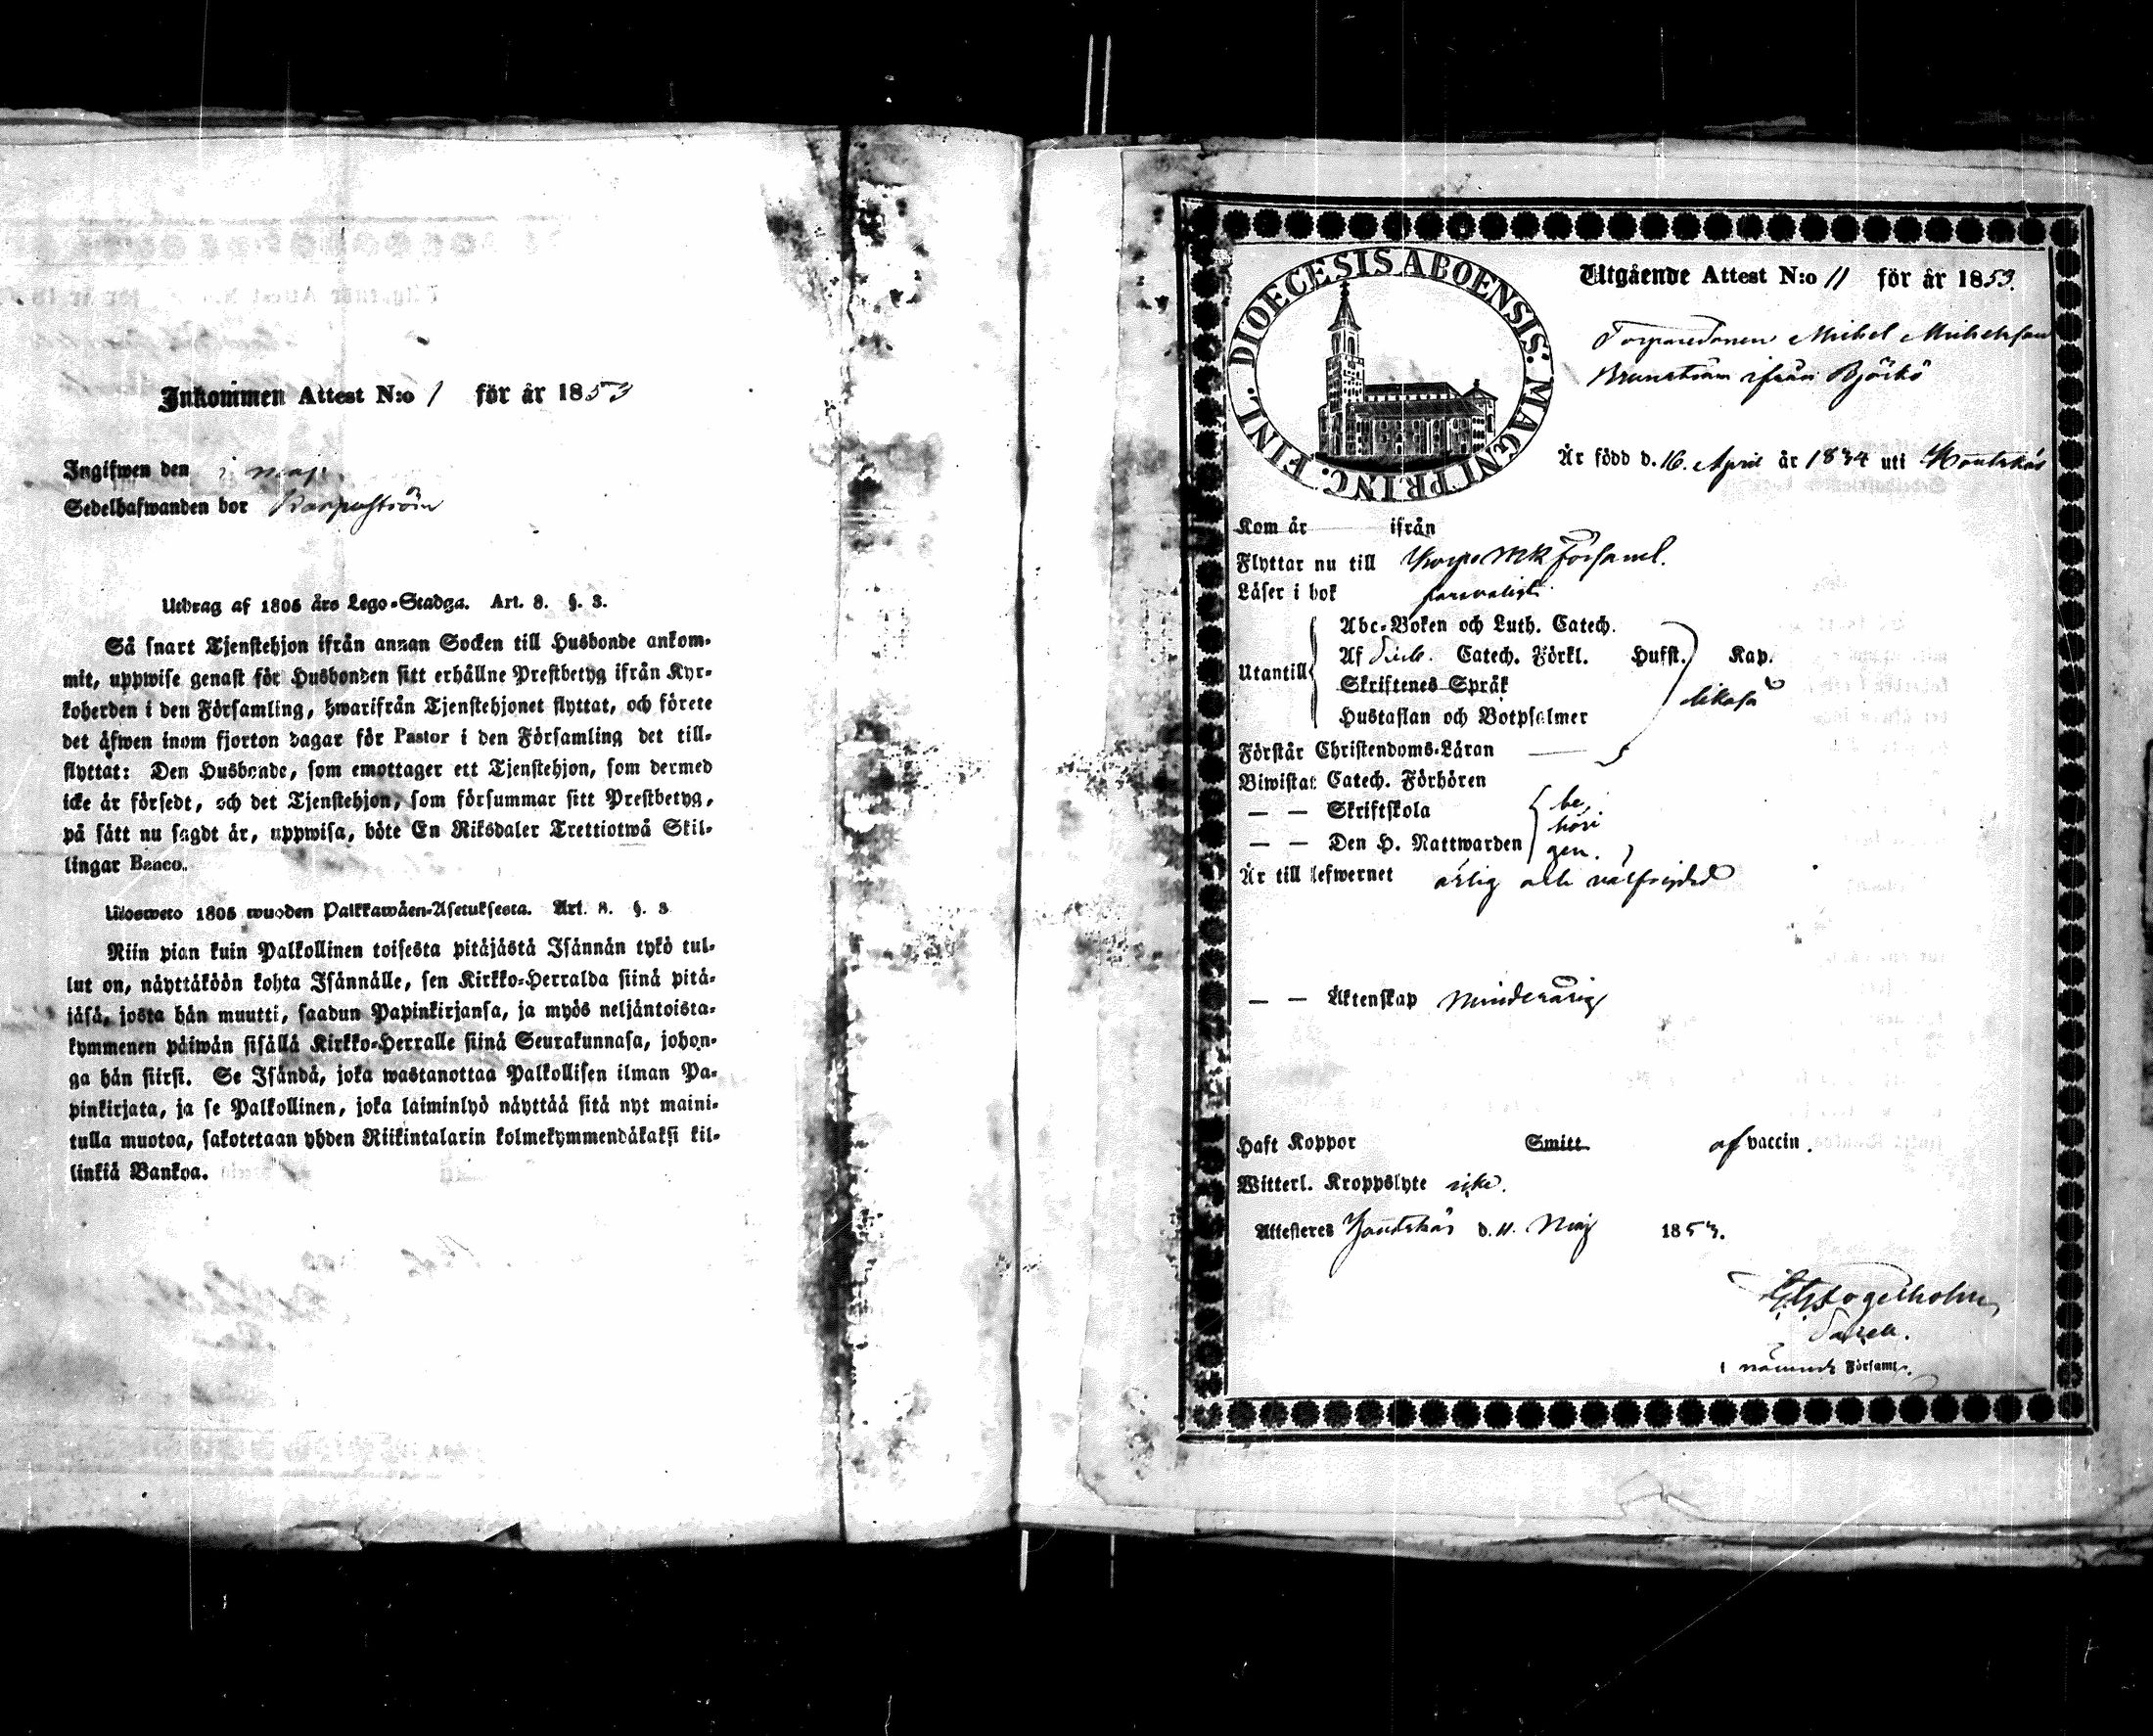 Inkommen Attest N:o 1 för år 1853
Ingifwen den i maji
Sedelhafwanden bor Korpoström
Utdrag af 1805 års Lego-Stadga. Art. 8. §. 3.
Så snart Tjenstehjon ifrån annan Socken till Husbonde ankom-
mit, uppwise genast för Husbonden sitt erhållne Prestbetyg ifrån Kyr-
koherden i den Församling, hwarifrån Tjenstehjonet flyttat, och förete
det äfwen inom fjorton dagar för Pastor i den Församling det till-
flyttat: Den Husbonde, som emottager ett Tjenstehjon, som dermed
icke är försedt, och det Tjenstehjon, som försummar sitt Prestbetyg,
på sätt nu sagdt är, uppwisa, böte En Riksdaler Trettiotwå Skil-
lingar Banco.
Ulosweto 1805 wuoden Palkkawäen-Asetuksesta. Art. 8. §. 3
Niin pian kuin Palkollinen toisesta pitäjästä Isännän tykö tul-
lut on, näyttäköön kohta Isännälle, sen Kirkko-Herralda siinä pitä-
jäsä, josta hän muutti, saadun Papinkirjansa, ja myös neljäntoista-
kymmenen päiwän sisällä Kirkko-Herralle siinä Seurakunnasa, johon-
ga hän siirsi. Se Isändä, joka wastanottaa Palkollisen ilman Pa-
pinkirjata, ja se Palkollinen, joka laiminlyö näyttää sitä nyt maini-
tulla muotoa, sakotetaan yhden Riikintalarin kolmekymmendäkaksi kil-
linkiä Bankoa.
DIOECESIS ABOENSIS. MAGNI PRINC. FINL.
Utgående Attest N:o 11 för år 1853.
Torparedonen Michel Michelsson
Brunström ifrån Björkö
Är född d. 16. April år 1834 uti Houtskär
Kom år ifrån
Flyttar nu till Korpo Mk Församl.
Läser i bok försvarligt
Utantill
Abc-Boken och Luth. Catech.
Af Catech. Förkl. Husst. Kap.
Skriftenes Språk
likaså
Hustaflan och Botpsalmer
Förstår Christendoms-Läran
Biwistat Catech. Förhören
— — Skriftskola
be,
höri
— — Den H. Nattwarden
gen.
Är till lefwernet ärlig och välfrejdad
— — Äktenskap minderårig
Haft Koppor Smitt af vaccin.
Witterl. Kroppslyte icke.
Attesteres Houtskär d. 11. Maj 1853.
Fogelholm
i nämnde Församl.